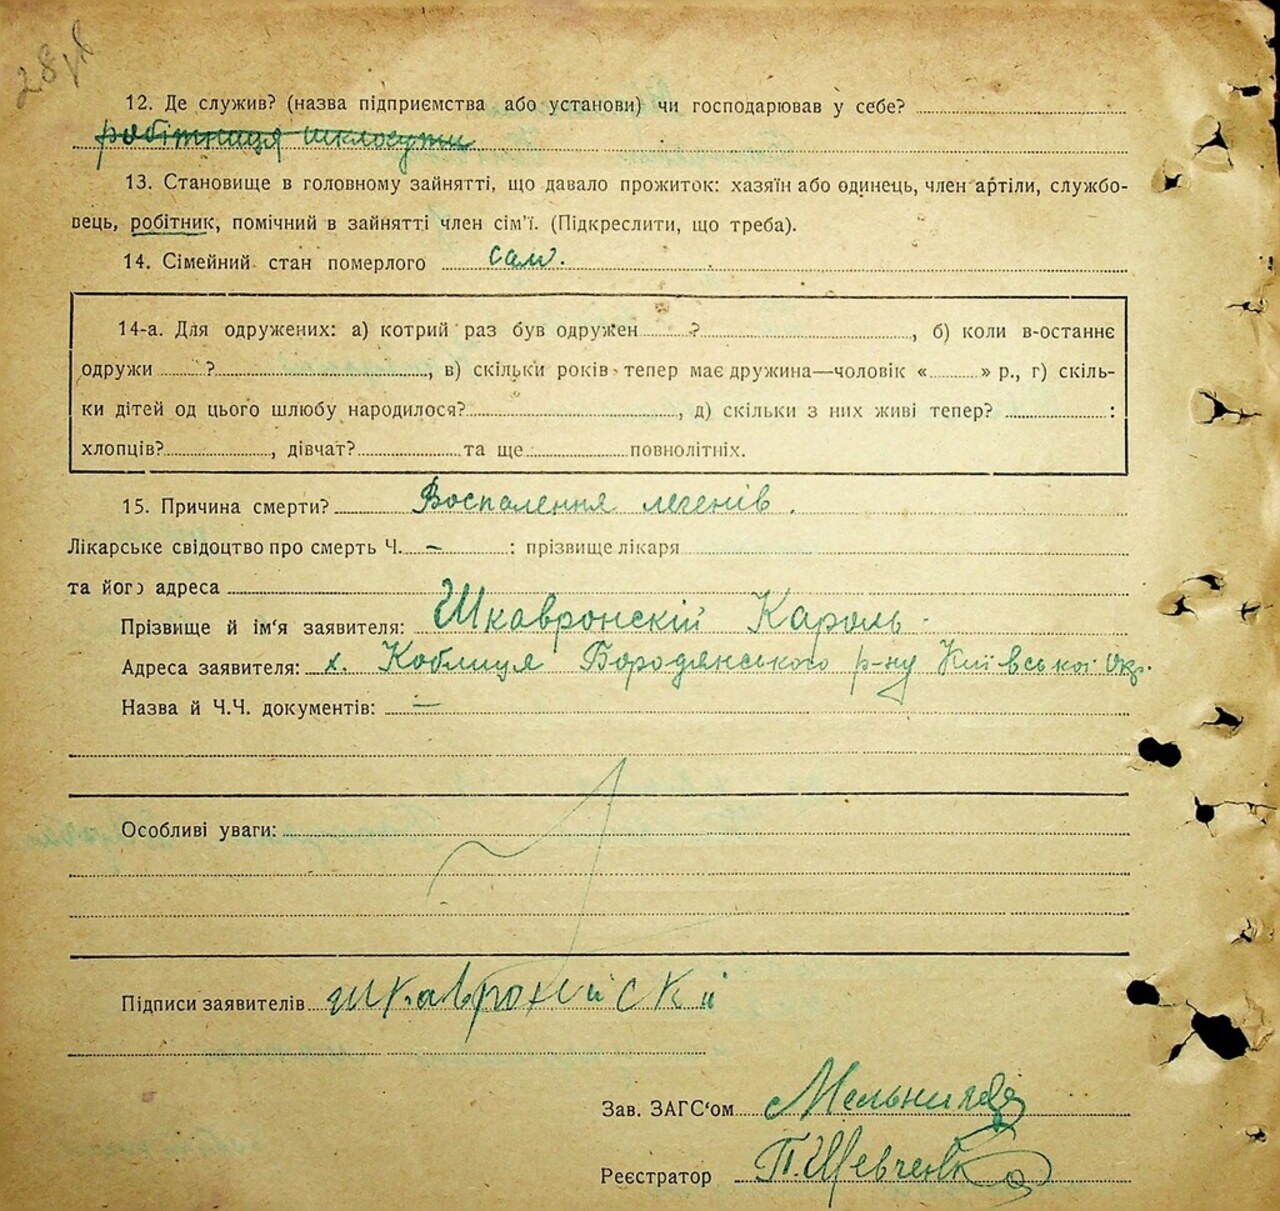 12. Де служив? (назва підприємства або установи) чи господарював у себе?
робітниця шклогути
13. Становище в головному зайнятті, що давало прожиток: хазяїн або одинець, член артіли, службо-
вець, робітник, помічний в зайнятті член сім'ї. (Підкреслити, що треба).
14. Сімейний стан померлого сам.
14-а. Для одружених: а) котрий раз був одружен ? , б) коли в-останнє
одружи ? , в) скільки років тепер має дружина—чоловік « » р., г) скіль-
ки дітей од цього шлюбу народилося? , д) скільки з них живі тепер? :
хлопців? , дівчат? та ще повнолітніх.
15. Причина смерти? Воспалення легенів.
Лікарське свідоцтво про смерть Ч. — : прізвище лікаря
та його адреса
Прізвище й ім'я заявителя: Шкавронскій Кароль
Адреса заявителя: х. Коблиця Бородянського р-ну Київської Окр.
Назва й Ч.Ч. документів: —
Особливі уваги:
Підписи заявителів
Зав. ЗАГС'ом
Реєстратор П. Шевченко